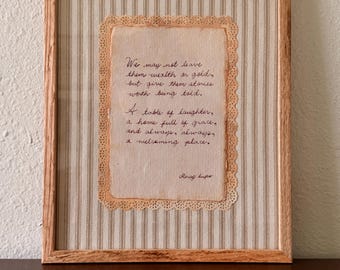 We may not leave
them wealth or gold,
but give them stories
worth being told.
A table of laughter,
a home full of grace,
and always, always,
a welcoming place.